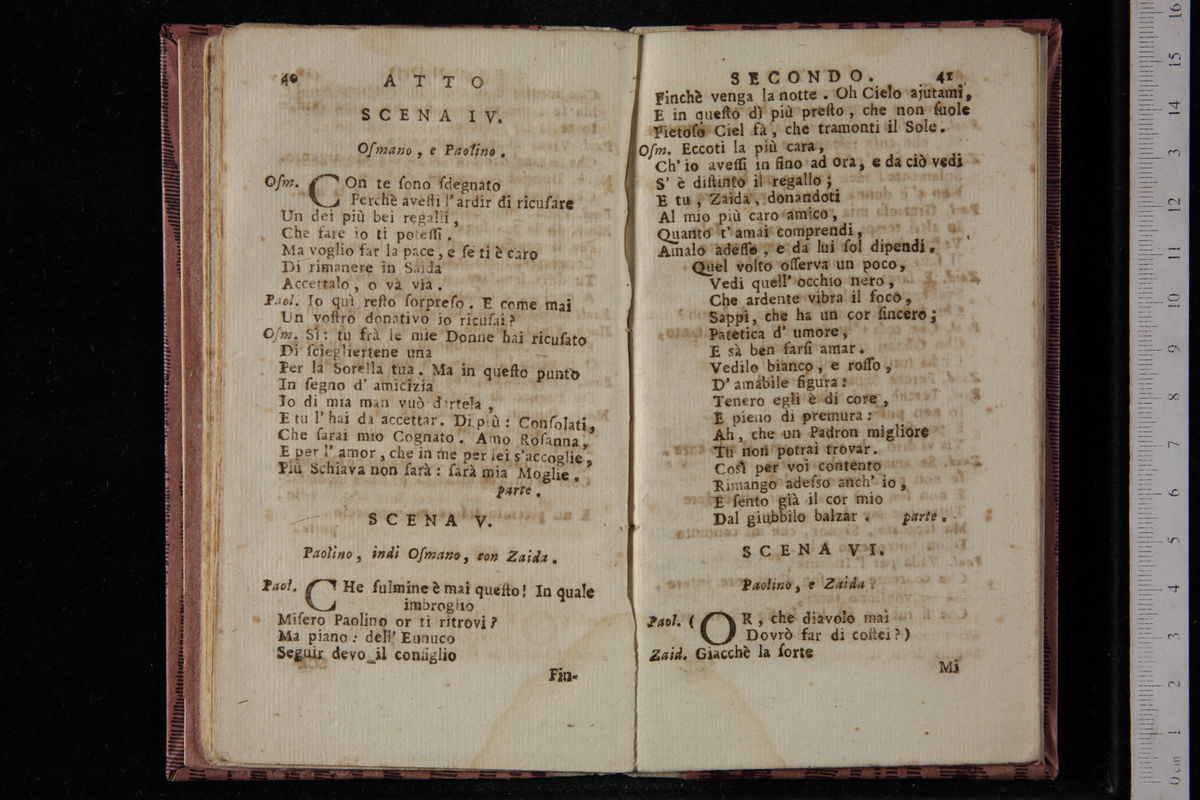 40 ATTO
SCENA IV.
Oſmano, e Paolino.
Oſm. COn te ſono ſdegnato
Perchè aveſti l'ardir di ricuſare
Un dei più bei regalli,
Che fare io ti poteſſi.
Ma voglio far la pace, e ſe ti è caro
Di rimanere in Saida
Accettalo, o và via.
Paol. Io quì reſto ſorpreſo. E come mai
Un voſtro donativo io ricuſai?
Oſm. Sì: tu frà le mie Donne hai ricuſato
Di ſciegliertene una
Per la Sorella tua. Ma in queſto punto
In ſegno d'amicizia
Io di mia man vuò dartela,
E tu l'hai da accettar. Di più: Conſolati,
Che ſarai mio Cognato. Amo Roſanna,
E per l'amor, che in me per lei s'accoglie,
Più Schiava non ſarà: ſarà mia Moglie.
parte.
SCENA V.
Paolino, indi Oſmano, con Zaida.
Paol. CHe fulmine è mai queſto! In quale
imbroglio
Miſero Paolino or ti ritrovi?
Ma piano: dell' Eunuco
Seguir devo il conſiglio
Fin-
SECONDO. 41
Finchè venga la notte. Oh Cielo ajutami,
E in queſto dì più preſto, che non ſuole
Pietoſo Ciel fà, che tramonti il Sole.
Oſm. Eccoti la più cara,
Ch'io aveſſi in fino ad ora, e da ciò vedi
S'è diſtinto il regallo;
E tu, Zaida, donandoti
Al mio più caro amico,
Quanto t'amai comprendi,
Amalo adeſſo, e da lui ſol dipendi.
Quel volto oſſerva un poco,
Vedi quell'occhio nero,
Che ardente vibra il foco,
Sappi, che ha un cor ſincero;
Patetica d'umore,
E sà ben farſi amar.
Vedilo bianco, e roſſo,
D'amabile figura:
Tenero egli è di core,
E pieno di premura:
Ah, che un Padron migliore
Tu non potrai trovar.
Così per voi contento
Rimango adeſso anch'io,
E ſento già il cor mio
Dal giubbilo balzar. parte.
SCENA VI.
Paolino, e Zaida.
Paol. (OR, che diavolo mai
Dovrò far di coſtei?)
Zaid. Giacchè la ſorte
Mi
0 cm 1 2 3 4 5 6 7 8 9 10 11 12 3 14 15 16